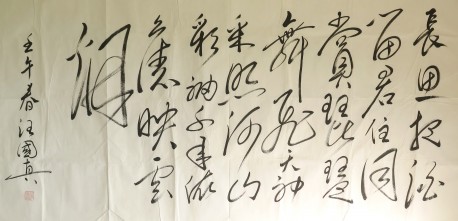 長思把酒
留君住同
賞琵琶
舞飛天神
采照河山
彩袖千年依
舊映雲
壬午春汪國真